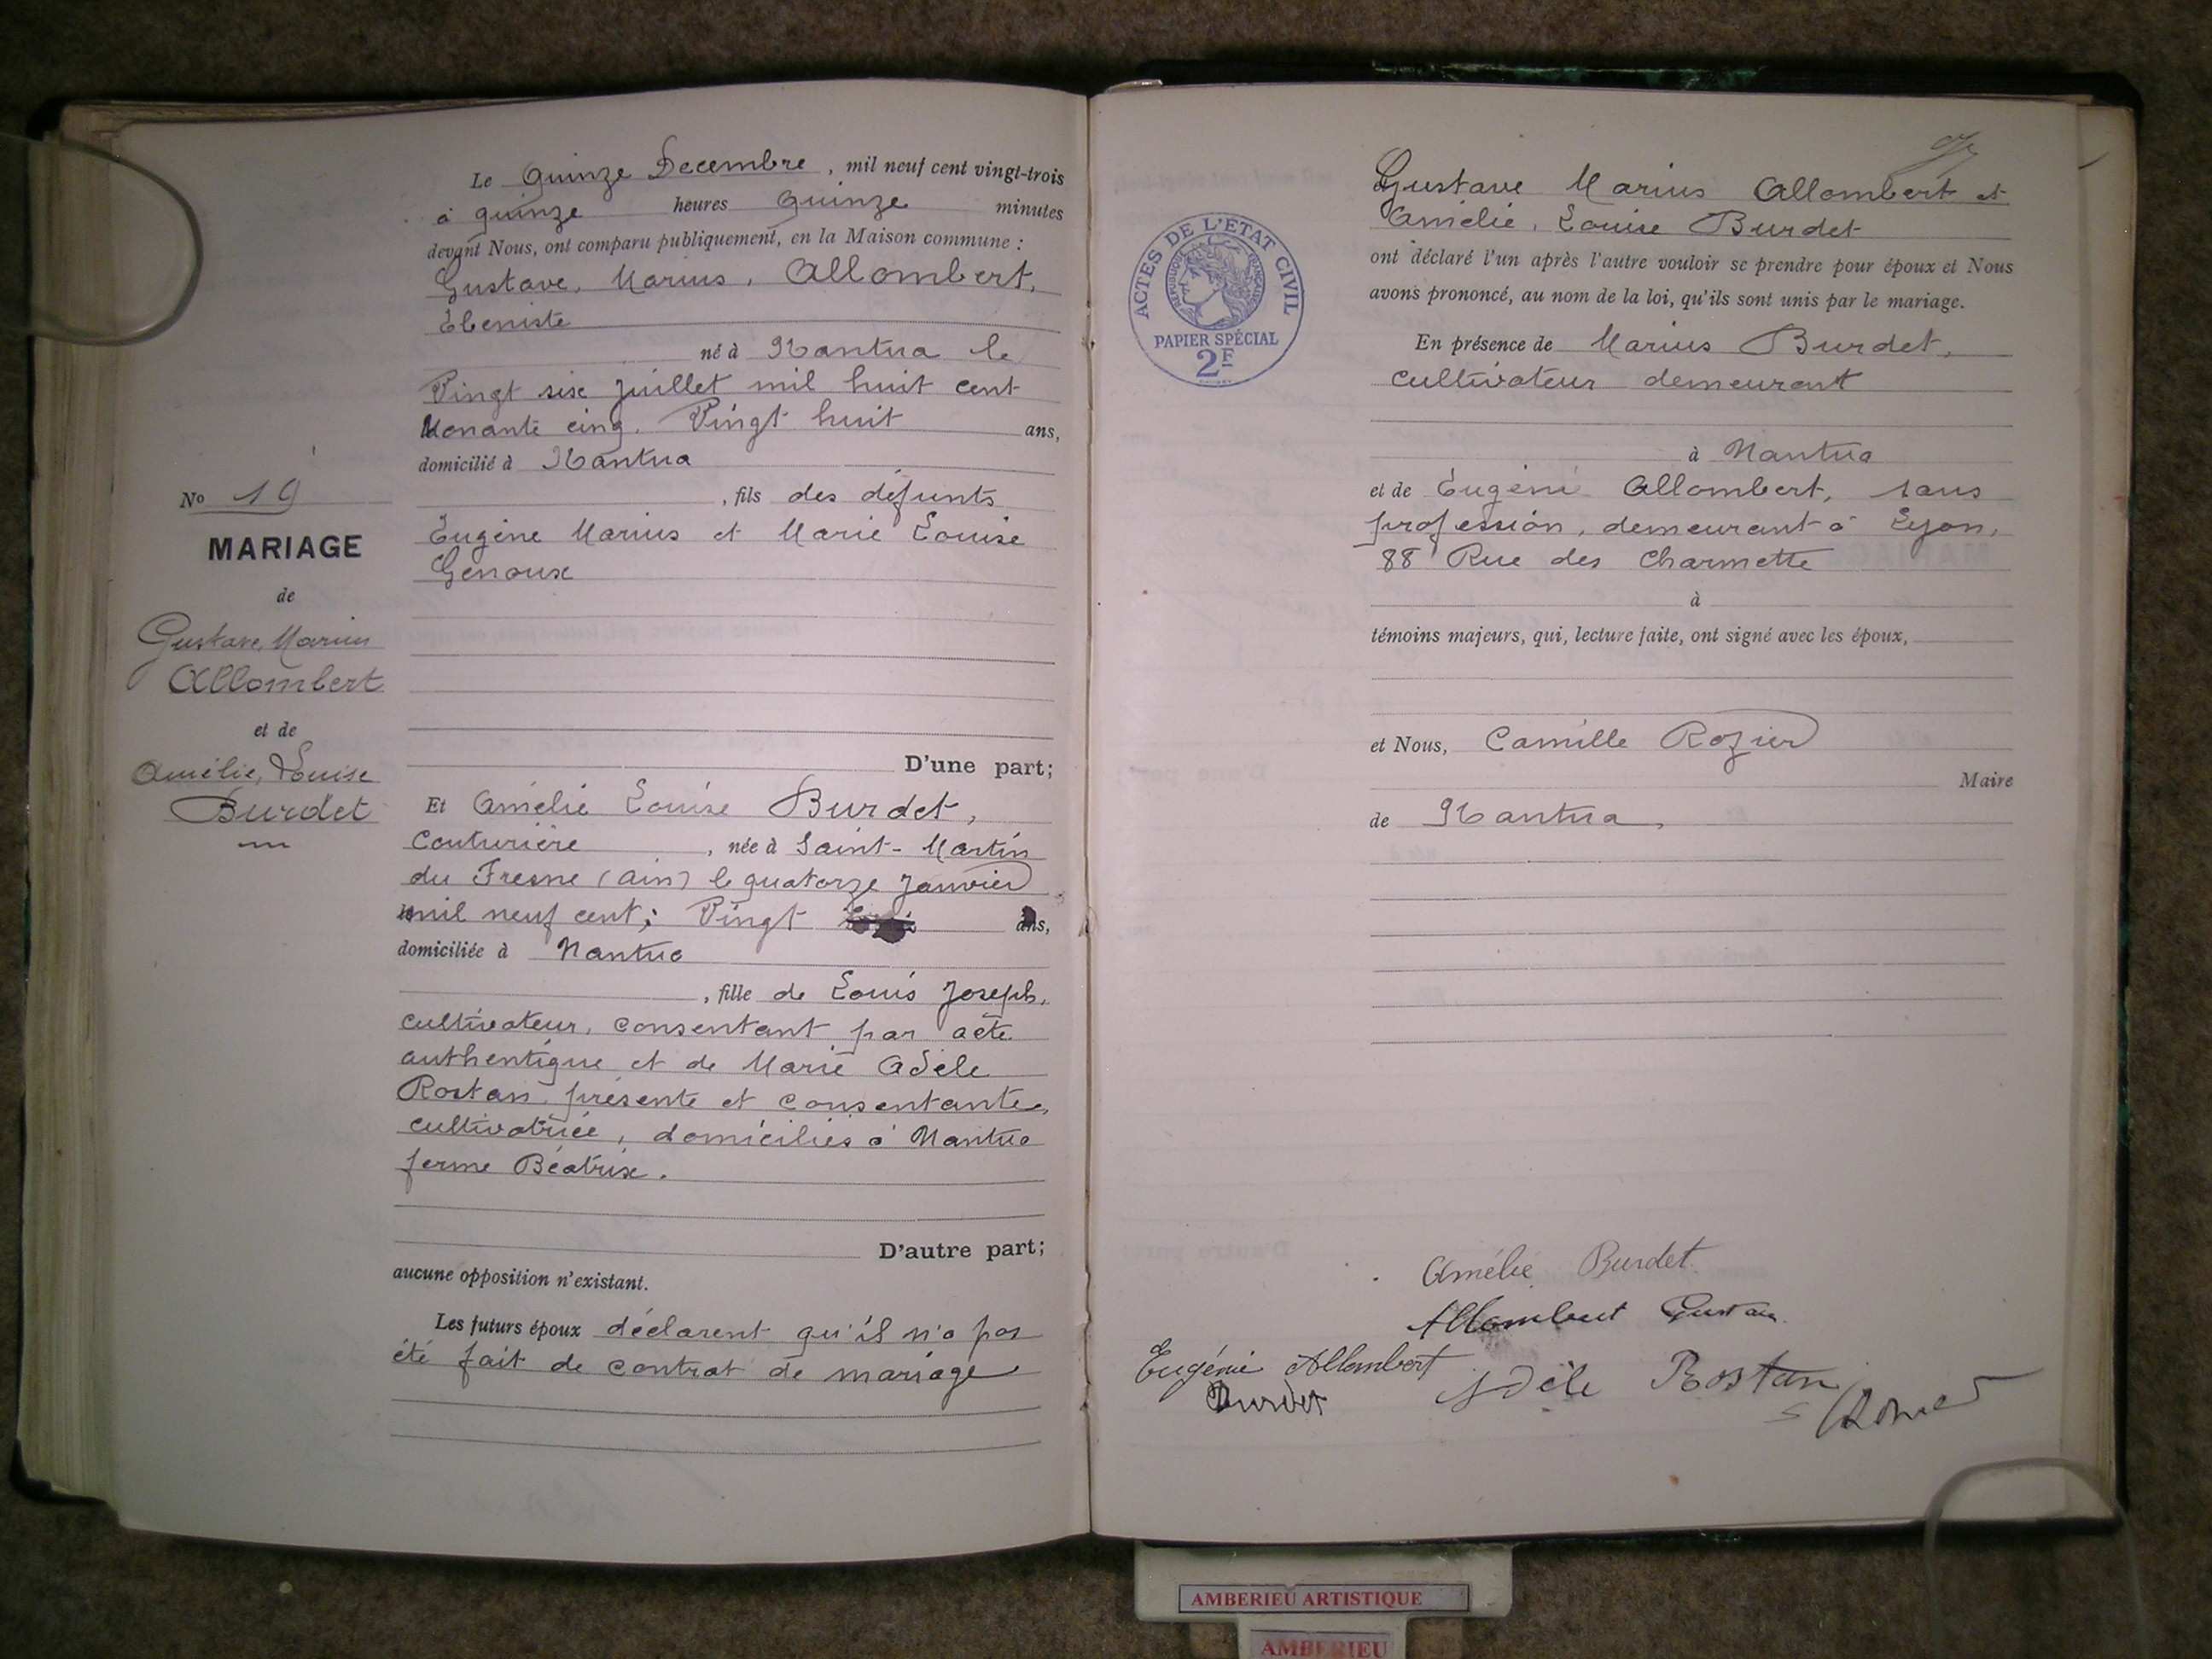 Le Quinze Decembre, mil neuf cent vingt-trois
à quinze heures Quinze minutes
devant Nous, ont comparu publiquement, en la Maison commune :
Gustave, Marius, Allombert,
Ebeniste
né à Nantua le
Vingt six Juillet mil huit cent
Nonante cinq. Vingt huit ans,
domicilié à Nantua
, fils des défunts
Eugène Marius et Marie Louise
Genoux
No 19
MARIAGE
de
Gustave, Marius
Allombert
et de
Amélie, Louise
Burdet
D'une part;
Et Amélie Louise Burdet,
Couturière, née à Saint-Martin
du Fresne (Ain) le quatorze Janvier
mil neuf cent; Vingt ans,
domiciliée à Nantua
, fille de Louis Joseph,
cultivateur, consentant par acte
authentique et de Marie Adèle
Rostan présente et consentante,
cultivatrice, domiciliés à Nantua
ferme Béatrix.
D'autre part;
aucune opposition n'existant.
Les futurs époux déclarent qu'il n'a pas
été fait de contrat de mariage
ACTES DE L'ÉTAT CIVIL
RÉPUBLIQUE FRANÇAISE
PAPIER SPÉCIAL
2F
Gustave Marius Allombert et
Amélie, Louise Burdet
ont déclaré l'un après l'autre vouloir se prendre pour époux et Nous
avons prononcé, au nom de la loi, qu'ils sont unis par le mariage.
En présence de Marius Burdet,
cultivateur demeurant
à Nantua
et de Eugénie Allombert, sans
profession, demeurant à Lyon,
88 Rue des Charmette
à
témoins majeurs, qui, lecture faite, ont signé avec les époux,
et Nous, Camille Rozier
Maire
de Nantua,
Amélie Burdet
Allombert Gustave
Eugénie Allombert
Adèle Rostan
Burdet
AMBERIEU ARTISTIQUE
AMBERIEU